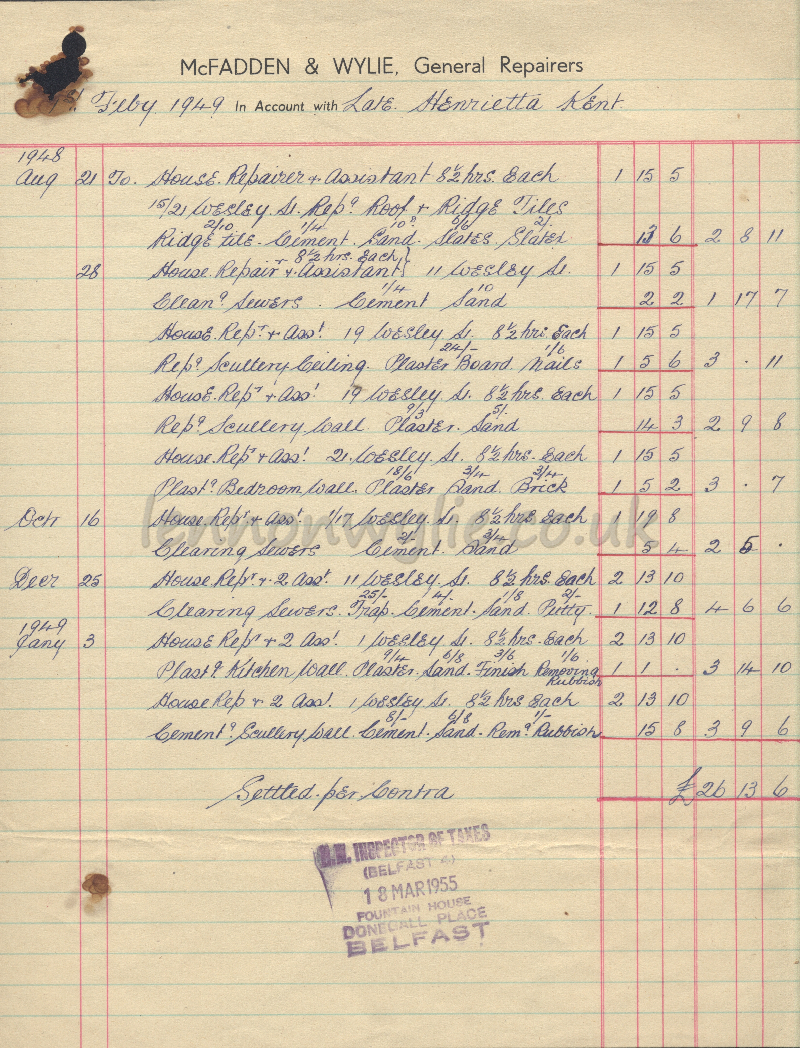 McFADDEN & WYLIE, General Repairers
1st Feby 1949 In Account with Late Henrietta Kent
1948
Aug 21 To House Repairer & Assistant 8½ hrs. Each 1 15 5
15/21 Wesley St. Repg Roof & Ridge Tiles
2/10 1/4 10d 6/6 2/-
Ridge tile. Cement. Sand. Slates. Slater 13 6 2 8 11
& 8½ hrs. Each}
28 House Repair & Assistant} 11 Wesley St. 1 15 5
1/4 10
Cleang Sewers. Cement Sand 2 2 1 17 7
House Repr & Asst 19 Wesley St. 8½ hrs. Each 1 15 5
24/- 1/6
Repg Scullery Ceiling. Plaster Board. Nails 1 5 6 3 . 11
House Repr & Asst 19 Wesley St. 8½ hrs. Each 1 15 5
9/3 5/-
Repg Scullery Wall. Plaster. Sand 14 3 2 9 8
House Repr & Asst 21 Wesley St. 8½ hrs. Each 1 15 5
18/6 3/4 3/4
Plastg Bedroom Wall. Plaster Sand. Brick 1 5 2 3 . 7
Octr 16 House Repr & Asst 1/17 Wesley St. 8½ hrs Each 1 19 8
2/- 3/4
Clearing Sewers Cement Sand 5 4 2 5 .
Decr 25 House Repr & 2 Asst 11 Wesley St. 8½ hrs. Each 2 13 10
25/- 4/- 1/8 2/-
Clearing Sewers. Trap. Cement. Sand. Putty. 1 12 8 4 6 6
1949
Jany 3 House Repr & 2 Asst 1 Wesley St. 8½ hrs. Each 2 13 10
9/4 6/8 3/6 1/6
Plastg Kitchen Wall. Plaster. Sand. Finish Removing Rubbish 1 1 . 3 14 10
House Rep & 2 Asst. 1 Wesley St. 8½ hrs Each 2 13 10
8/- 6/8 1/-
Cementg Scullery Wall. Cement. Sand. Remg Rubbish 15 8 3 9 6
Settled per Contra £26 13 6
H.M. INSPECTOR OF TAXES
(BELFAST 4)
18 MAR 1955
FOUNTAIN HOUSE
DONEGALL PLACE
BELFAST
lennonwylie.co.uk